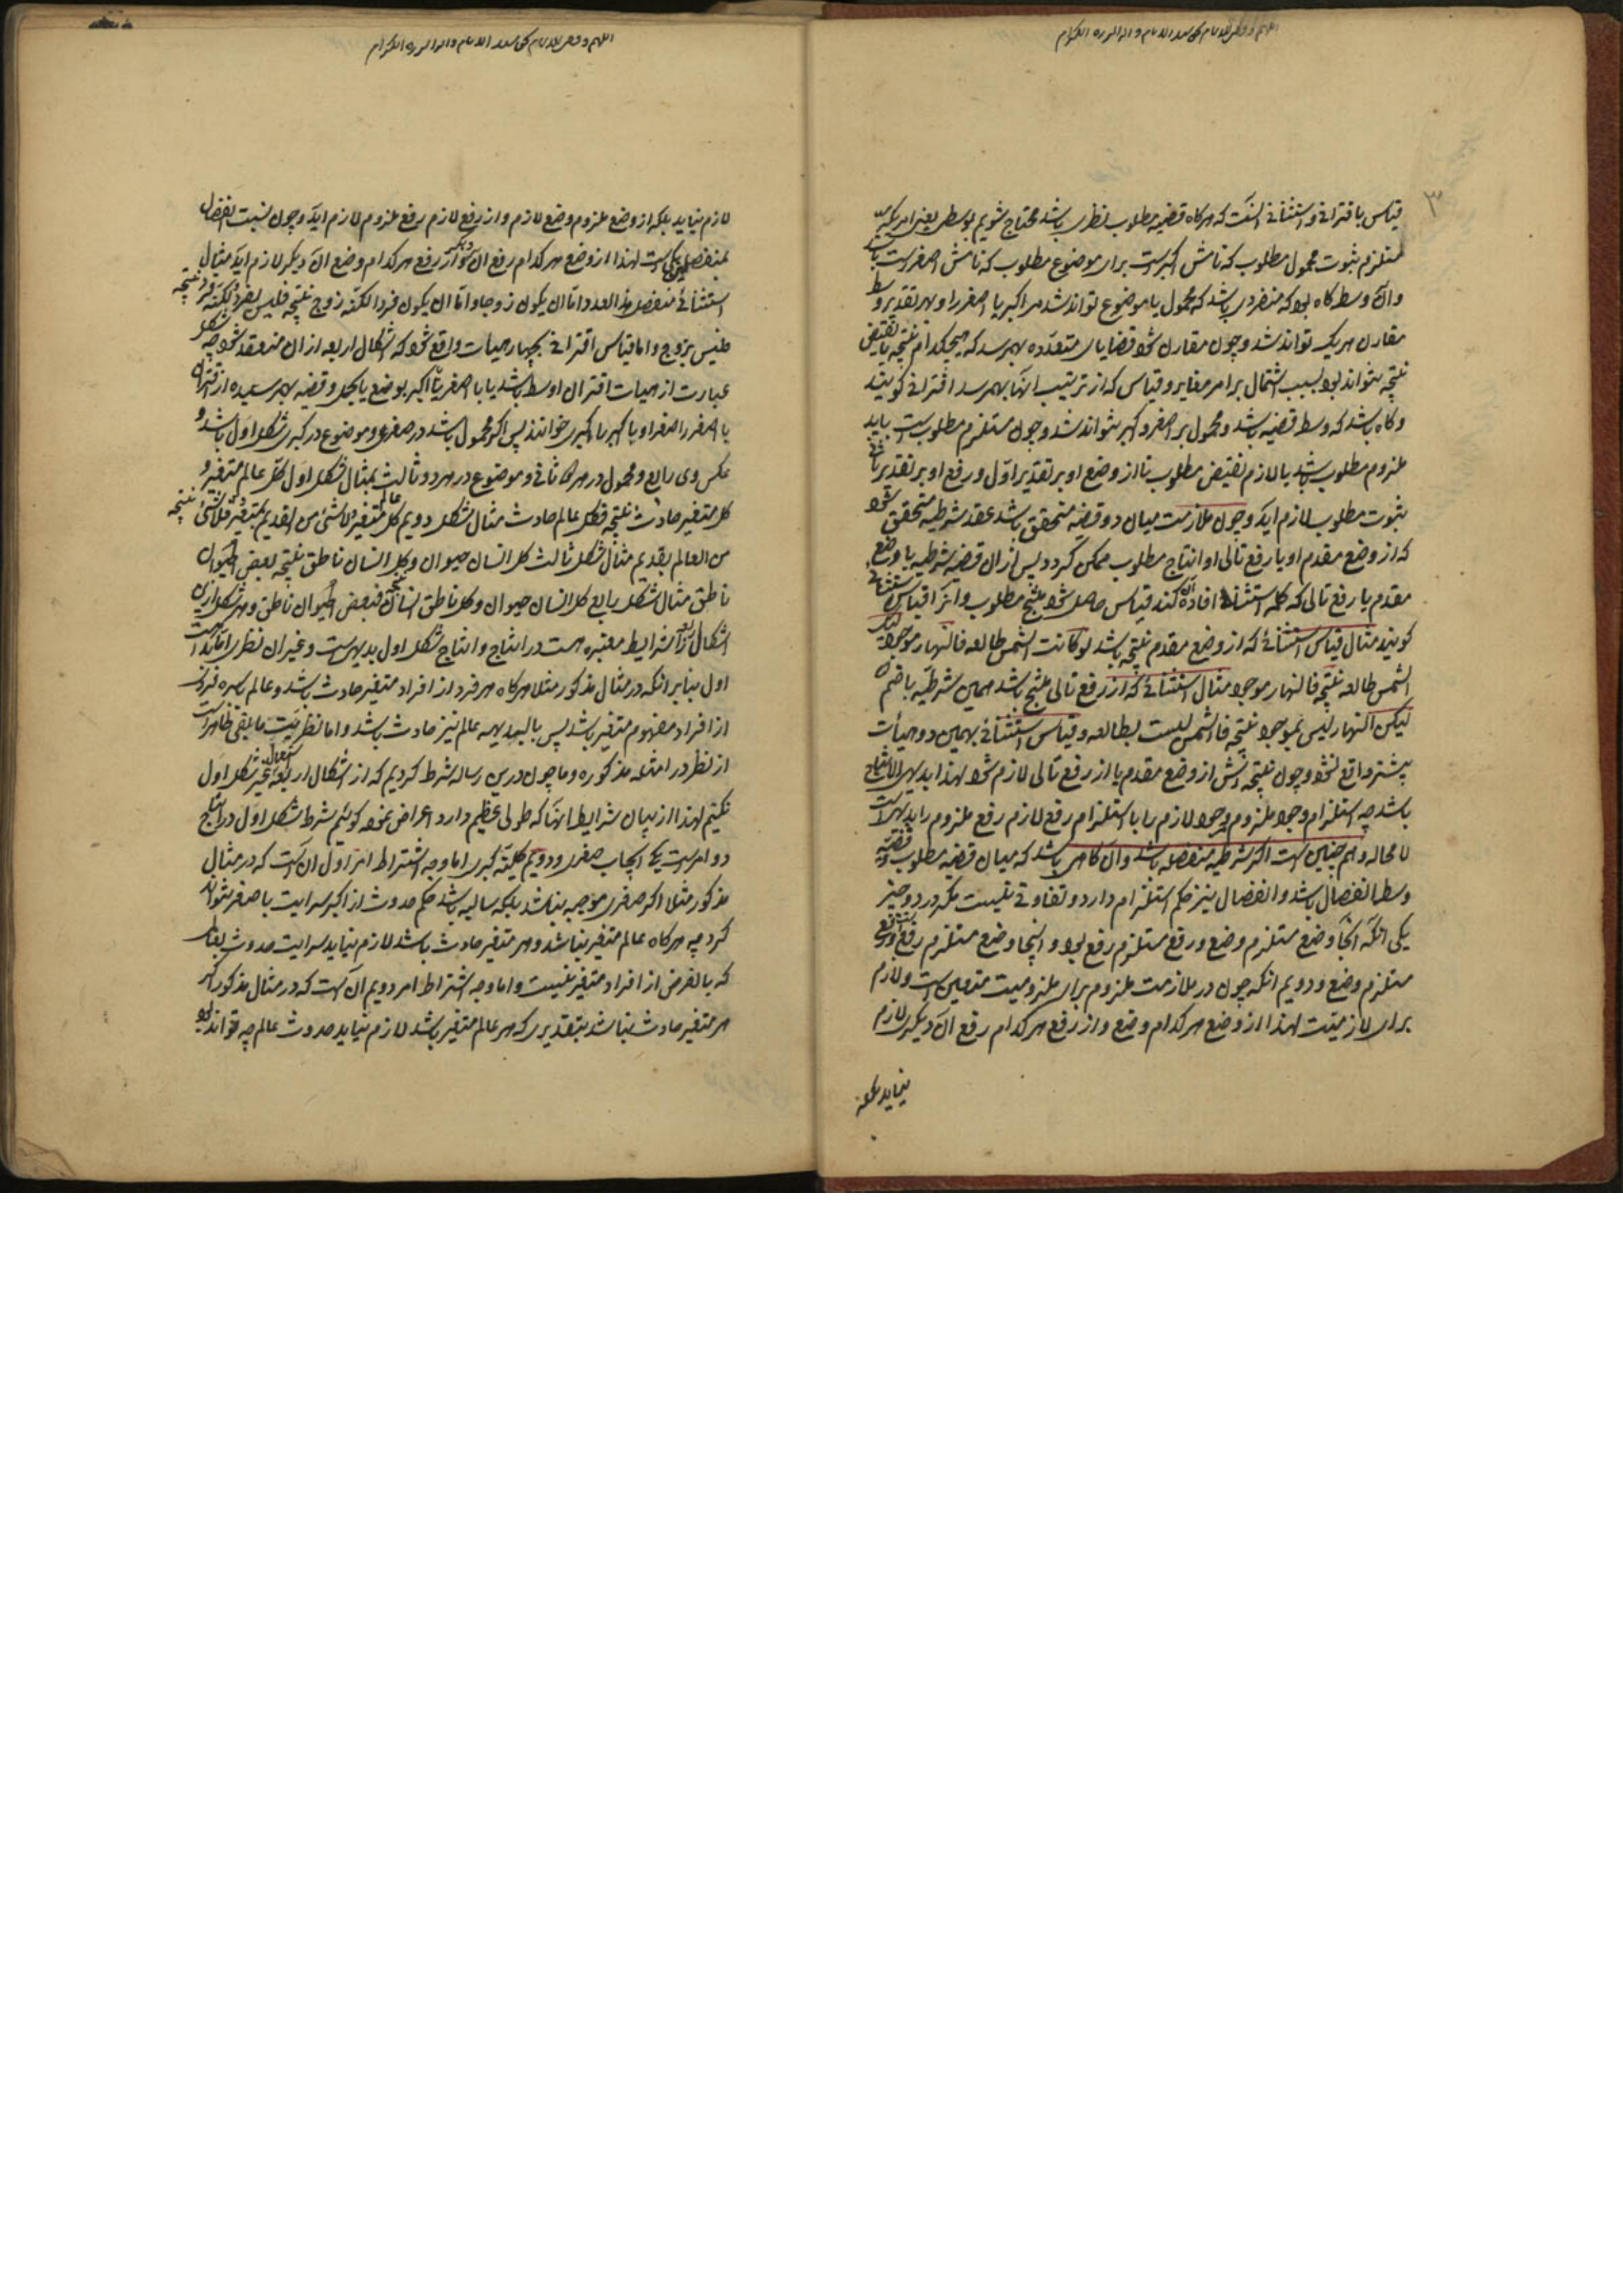 ۳
قیاس باقترانی و استثنائی انست که هرکاه قضیه مطلوب نظری باشد محتاج شویم بوسط یعنی امریکه
مستلزم ثبوت محمول مطلوب که نامش اکبرست برای موضوع مطلوب که نامش اصغرست باشد
وان وسط کاه بود که منفردی باشد که محمول یا موضوع تواند شد مر اکبر یا اصغر را و بهر تقدیر وسط
مقارن هریک تواند شد و چون مقارن شود قضایای متعدده بهم رسد که هیچکدام نتیجه یا نقیض
نتیجه نتواند بود بسبب اشتمال بر امر مغایر و قیاس که از ترتیب انها بهم رسد اقترانی کویند
و کاه باشد که وسط قضیه باشد و محمول بر اصغر و اکبر نتواند شد و چون مستلزم مطلوبست باید
ملزوم مطلوب باشد یا لازم نقیض مطلوب تا از وضع او بر تقدیر اول و رفع او بر تقدیر ثانی
ثبوت مطلوب لازم اید و چون ملازمت میان دو قضیه متحقق باشد عقد شرطیه متحقق شود
که از وضع مقدم او یا رفع تالی او انتاج مطلوب ممکن کردد پس ازان قضیه شرطیه با وضع
مقدم یا رفع تالی که کلمه استثناء افاده ان کند قیاس حاصل شود منتج مطلوب و انرا قیاس استثنائی
کویند مثال قیاس استثنائی که از وضع مقدم نتیجه باشد لو کانت الشمس طالعه فالنهار موجود لیکن
الشمس طالعه نتیجه فالنهار موجود مثال استثنائی که از رفع تالی منتج باشد همین شرطیه با ضم
لیکن النهار لیس بموجود نتیجه فالشمس لیست بطالعه و قیاس استثنائی بهمین دو هیأت
بیشتر واقع نشود و چون نتیجه اش از وضع مقدم یا از رفع تالی لازم شود لهذا بدیهی الانتاج
باشد چه استلزام وجود ملزوم وجود لازم را با استلزام رفع لازم رفع ملزوم را بدیهیست
لا محاله و هم چنین ست اکر شرطیه منفصله باشد وان کاهی باشد که میان قضیه مطلوب و قضیه
وسط انفصال باشد و انفصال نیز حکم استلزام دارد و تفاوتی نیست مکر در دو چیز
یکی انکه انجا وضع مستلزم وضع و رفع مستلزم رفع بود و اینجا وضع مستلزم رفع و رفع
مستلزم وضع و دویم انکه چون در ملازمت ملزوم برای ملزومیت متعین است و لازم
برای لازمیت لهذا از وضع هرکدام وضع و از رفع هرکدام رفع ان دیکر لازم
نیاید بلکه
لازم نیاید بلکه از وضع ملزوم وضع لازم و از رفع لازم رفع ملزوم لازم اید و چون نسبت انفصال
بمنفصلین یکی است لهذا از وضع هرکدام رفع ان دیکر و از رفع هرکدام وضع ان دیکر لازم اید مثال
استثنائی منفصل هذا العدد اما ان یکون زوجا و اما ان یکون فردا لکنه زوج نتیجه فلیس بفرد لکنه فرد نتیجه
فلیس بزوج و اما قیاس اقترانی بچهار هیات واقع شود که اشکال اربعه ازان منعقد شود چه شکل
عبارت از هیات اقتران اوسط باشد یا با اصغر یا با اکبر بوضع یا بحمل و قضیه بهم رسیده از اقتران
با اصغر را صغرا و با اکبر را کبری خوانند پس اکر محمول باشد در صغری و موضوع در کبری شکل اول باشد و
عکس وی رابع و محمول در هردو ثانی و موضوع در هردو ثالث مثال شکل اول کل عالم متغیر و
کل متغیر حادث نتیجه فکل عالم حادث مثال شکل دویم کل عالم متغیر و لا شئ من القدیم بمتغیر فلا شئ نتیجه
من العالم بقدیم مثال شکل ثالث کل انسان حیوان و کل انسان ناطق نتیجه بعض الحیوان
ناطق مثال شکل رابع کل انسان حیوان و کل ناطق انسان نتیجه فبعض الحیوان ناطق و هر شکل ازین
اشکال را شرایط معتبره هست در انتاج و انتاج شکل اول بدیهی ست و غیر ان نظری اما بداهت
اول بنابر انکه در مثال مذکور مثلا هرکاه هر فرد از افراد متغیر حادث باشد و عالم بسره فردی
از افراد مفهوم متغیر باشد پس بالبدیهه عالم نیز حادث باشد و اما نظریت مابقی ظاهرست
از نظر در امثله مذکوره و ما چون درین رساله شرط کردیم که از اشکال اربعه استعمال غیر شکل اول
نکنیم لهذا از بیان شرایط انها که طولی عظیم دارد اعراض نموده کوئیم شرط شکل اول در انتاج
دو امرست یکی ایجاب صغری و دویم کلیة کبری اما وجه اشتراط امر اول ان است که در مثال
مذکور مثلا اکر صغری موجبه نباشد بلکه سالبه باشد حکم حدوث از اکبر سرایت باصغر نتواند
کرد چه هرکاه عالم متغیر نباشد و هر متغیر حادث باشد لازم نیاید سرایت حدوث بعالم
که بالفرض از افراد متغیر نیست و اما وجه اشتراط امر دویم ان است که در مثال مذکور اکر
هر متغیر حادث نباشد بتقدیری که هر عالم متغیر باشد لازم نیاید حدوث عالم چه تواند بود